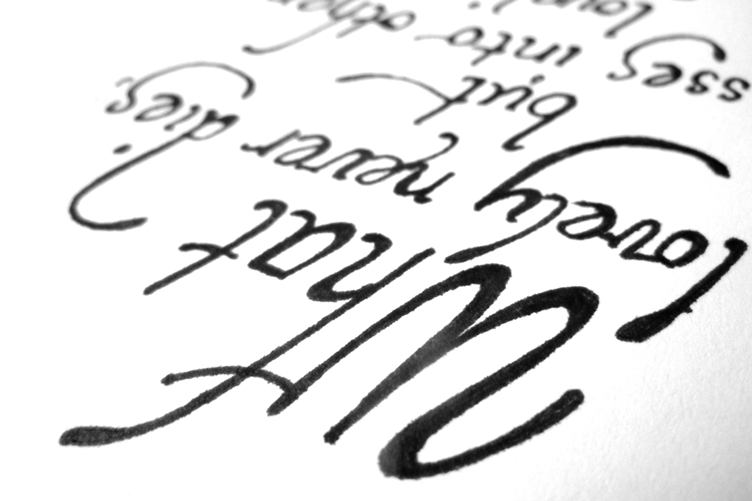 What
lovely never dies,
but
sses into other
loveli